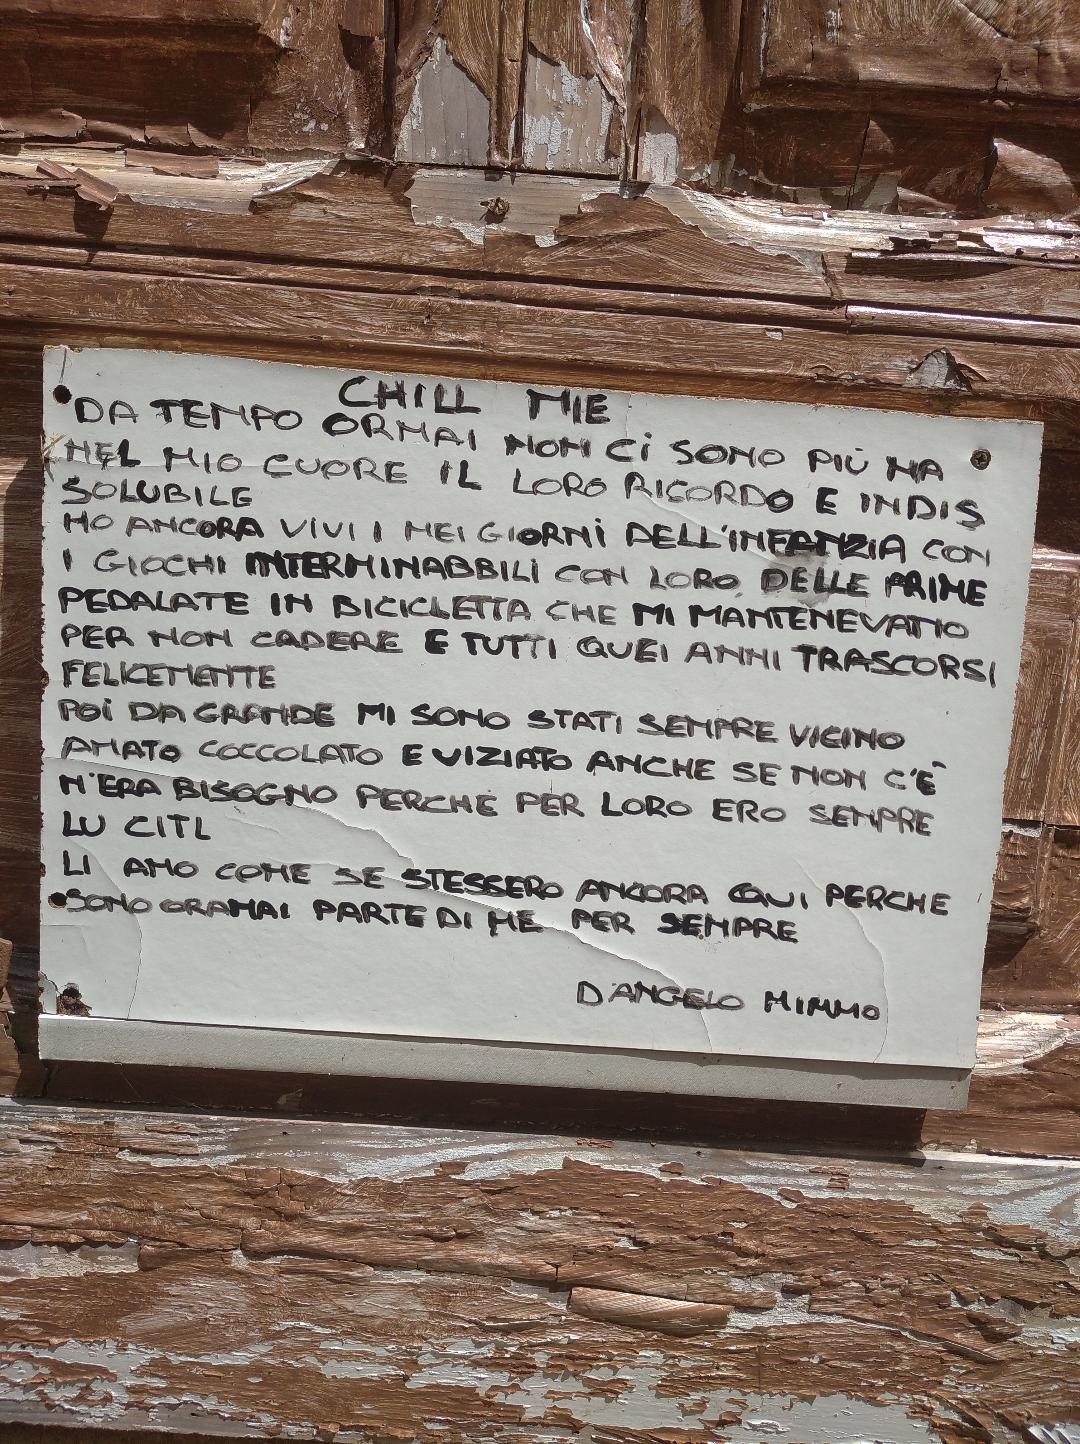 CHILL MIE
DA TEMPO ORMAI NON CI SONO PIÙ MA
NEL MIO CUORE IL LORO RICORDO E INDIS
SOLUBILE
HO ANCORA VIVI I MEI GIORNI DELL'INFANZIA CON
I GIOCHI INTERMINABBILI CON LORO, DELLE PRIME
PEDALATE IN BICICLETTA CHE MI MANTENEVANO
PER NON CADERE E TUTTI QUEI ANNI TRASCORSI
FELICEMENTE
POI DA GRANDE MI SONO STATI SEMPRE VICINO
AMATO COCCOLATO E VIZIATO ANCHE SE NON C'È
N'ERA BISOGNO PERCHE PER LORO ERO SEMPRE
LU CITL
LI AMO COME SE STESSERO ANCORA QUI PERCHE
SONO ORAMAI PARTE DI ME PER SEMPRE
D'ANGELO MIMMO